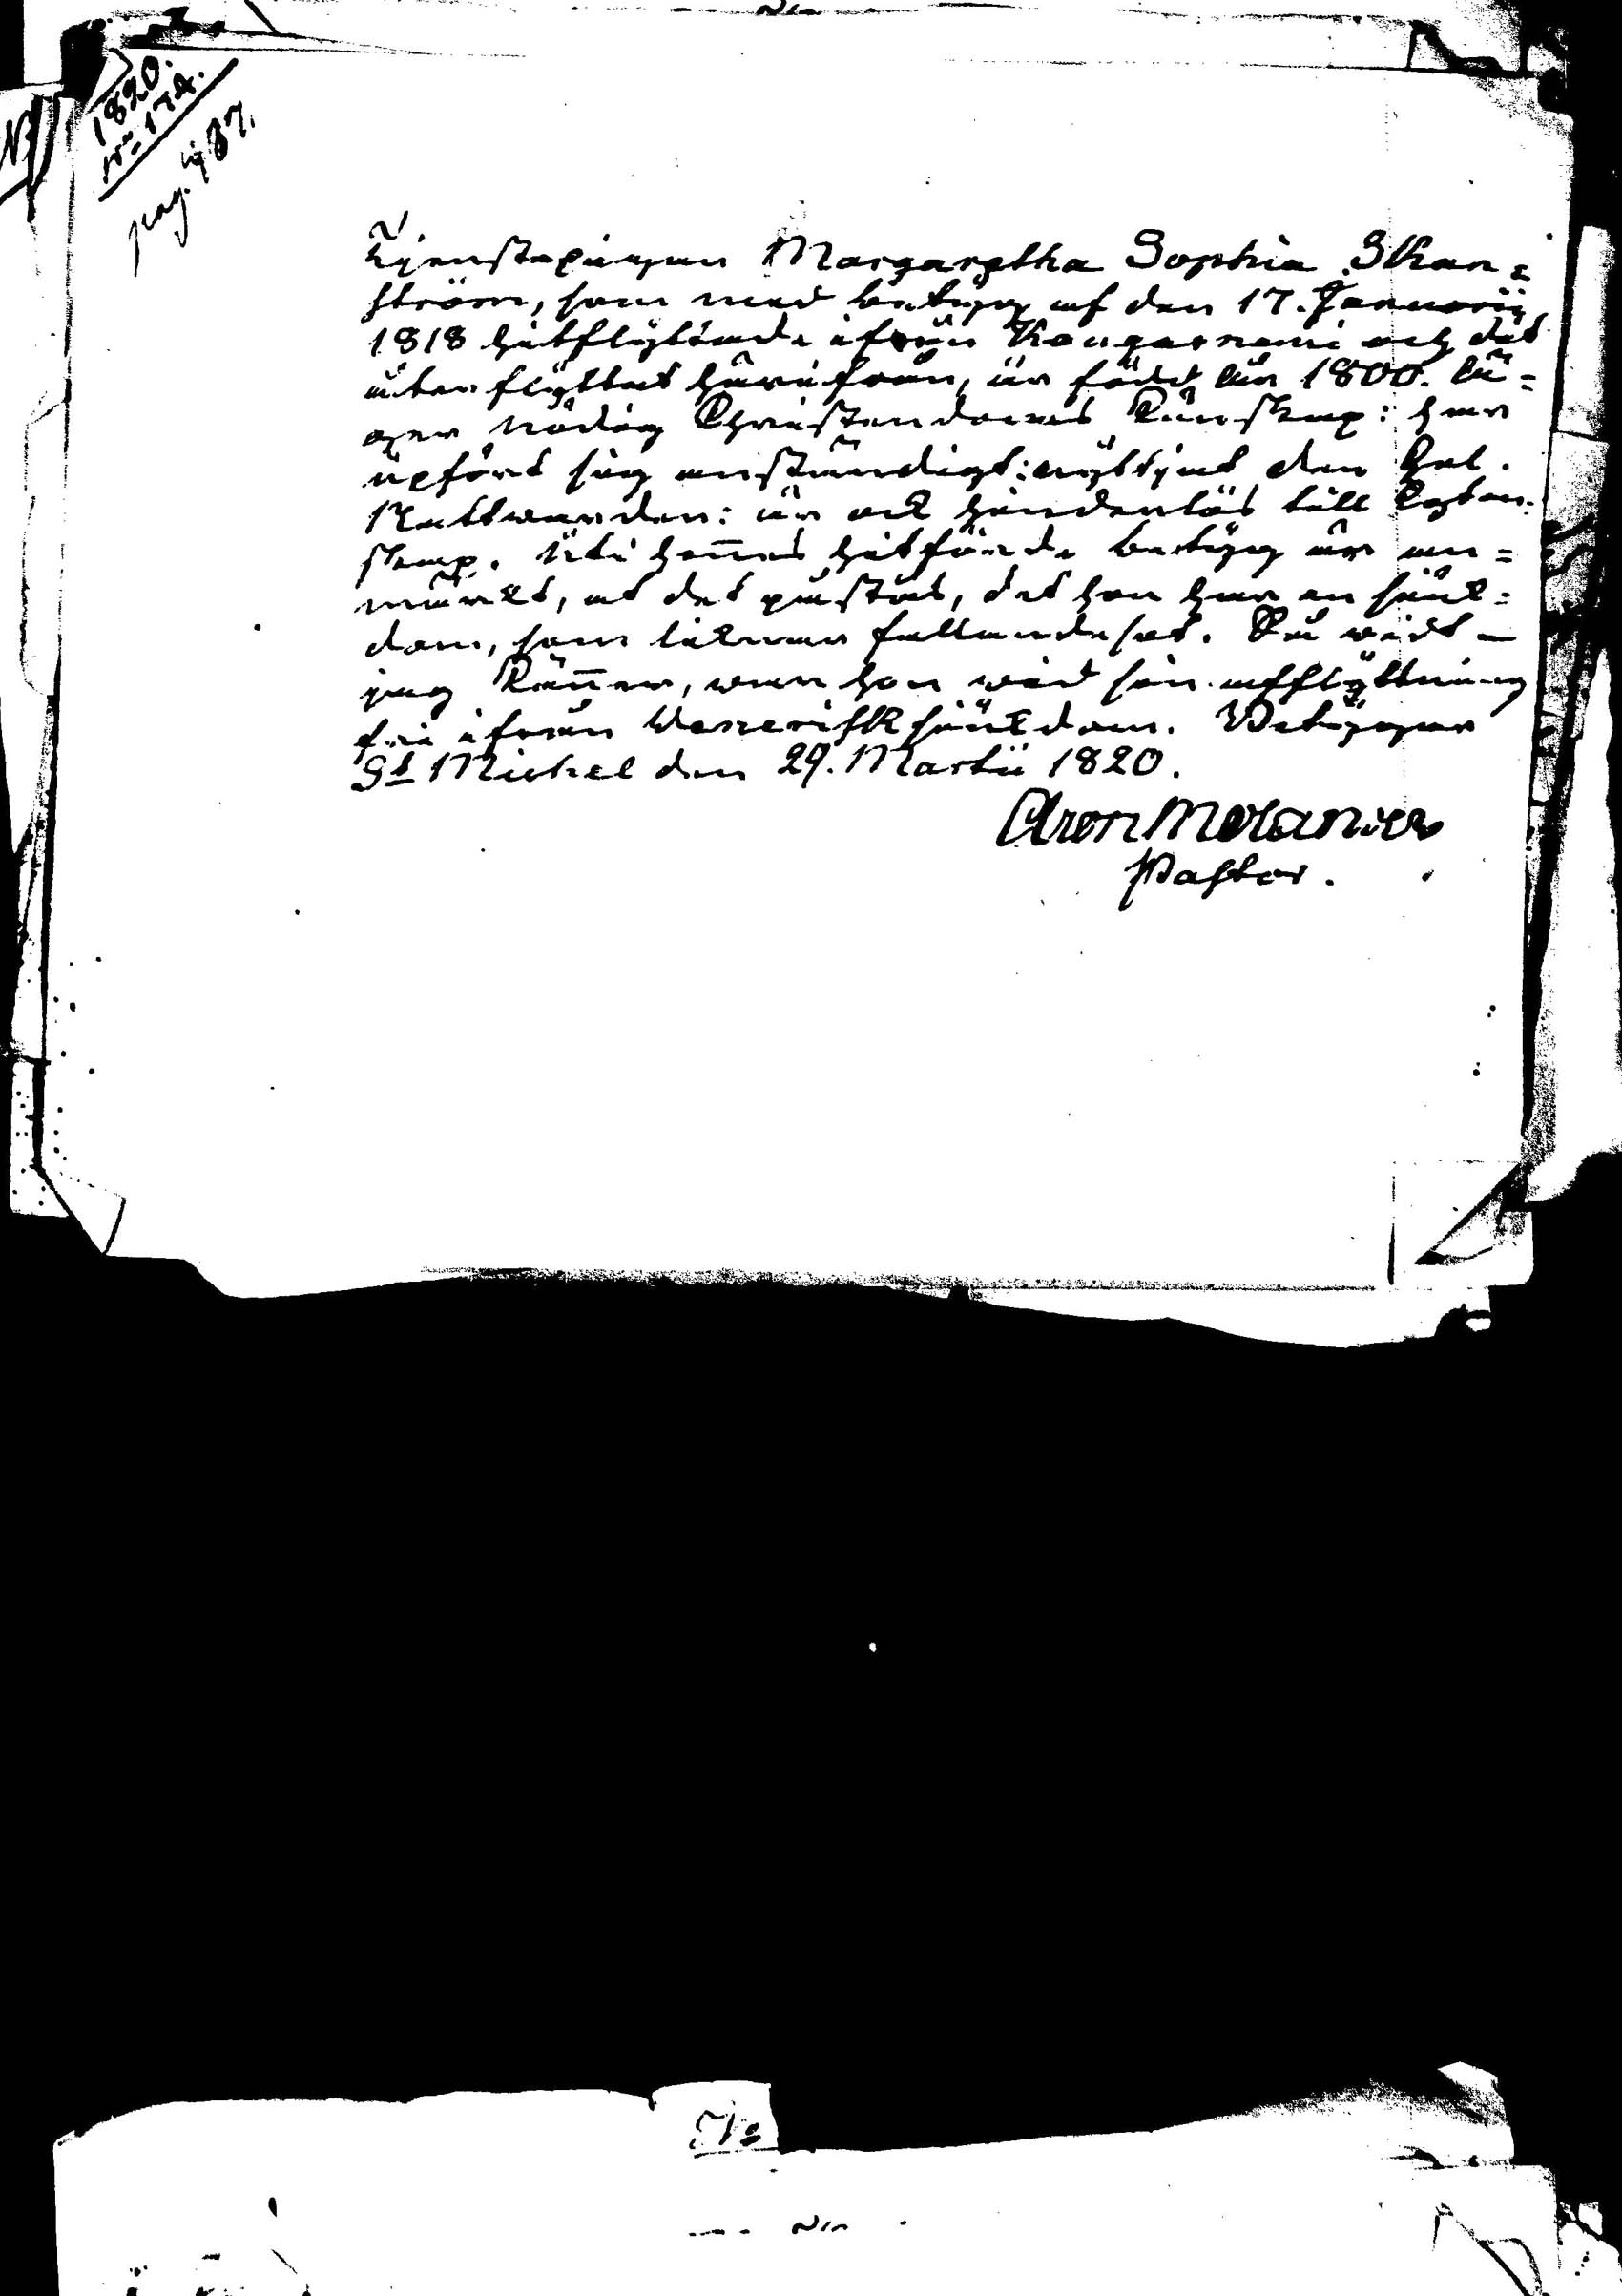 1820.
No 174.
pag. 487.
Tjenstepigan Margaretha Sophia Skan=
ström, som med betyg af den 17. Januarii
1818 hitflyttade ifrån Kangasniemi och det
åter flyttat härifrån, är född år 1800. Ä=
ger nödig Christendoms Kunskap: har
upfört sig anständigt: nyttjat den Hel.
Nattvarden: är ock hinderlös till Egten=
skap. Uti hennes hitförde betyg är an=
märkt, at det påstås, det hon har en sjuk=
dom, som liknar fallandesot. Så vidt
jag känner, war hon wid sin afflyttning
fri ifrån Venerisk sjukdom. Betygar
St Michel den 29. Martii 1820.
Aron Molander
Pastor.